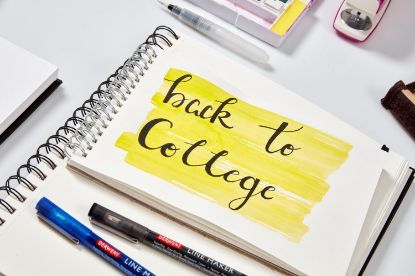 back to
College
DERWENT LINE MAKER
DERWENT LINE MAKER